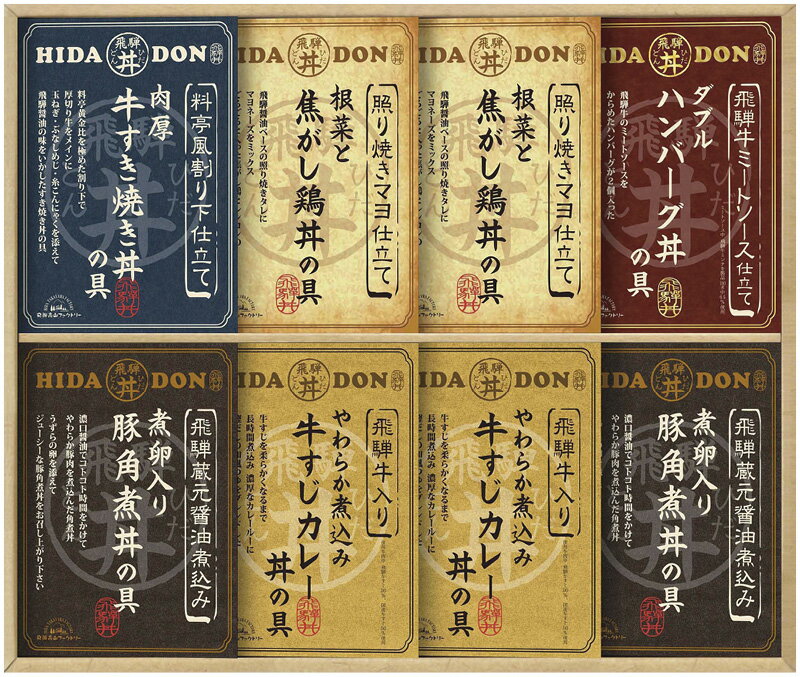 HIDA 飛騨丼 ひだどん DON
料亭風割り下仕立て
肉厚
牛すき焼き丼の具
料亭黄金比を極めた割り下で
厚切り牛をメインに
玉ねぎ・ぶなしめじ・糸こんにゃくを添えて
飛騨醤油の味をいかしたすき焼き丼の具
飛騨高山ファクトリー
HIDA 飛騨丼 ひだどん DON
照り焼きマヨ仕立て
根菜と
焦がし鶏丼の具
飛騨醤油ベースの照り焼きタレに
マヨネーズをミックス
HIDA 飛騨丼 ひだどん DON
照り焼きマヨ仕立て
根菜と
焦がし鶏丼の具
飛騨醤油ベースの照り焼きタレに
マヨネーズをミックス
HIDA 飛騨丼 ひだどん DON
飛騨牛ミートソース仕立て
ダブル
ハンバーグ丼の具
飛騨牛のミートソースを
からめたハンバーグが2個入った
HIDA 飛騨丼 ひだどん DON
飛騨蔵元醤油煮込み
煮卵入り
豚角煮丼の具
濃口醤油でコトコト時間をかけて
やわらか豚肉を煮込んだ角煮丼
うずらの卵を添えて
ジューシーな豚角煮丼をお召し上がり下さい
飛騨高山ファクトリー
HIDA 飛騨丼 ひだどん DON
飛騨牛入り
やわらか煮込み
牛すじカレー丼の具
牛すじを柔らかくなるまで
長時間煮込み 濃厚なカレールーに
HIDA 飛騨丼 ひだどん DON
飛騨牛入り
やわらか煮込み
牛すじカレー丼の具
牛すじを柔らかくなるまで
長時間煮込み 濃厚なカレールーに
HIDA 飛騨丼 ひだどん DON
飛騨蔵元醤油煮込み
煮卵入り
豚角煮丼の具
濃口醤油でコトコト時間をかけて
やわらか豚肉を煮込んだ角煮丼